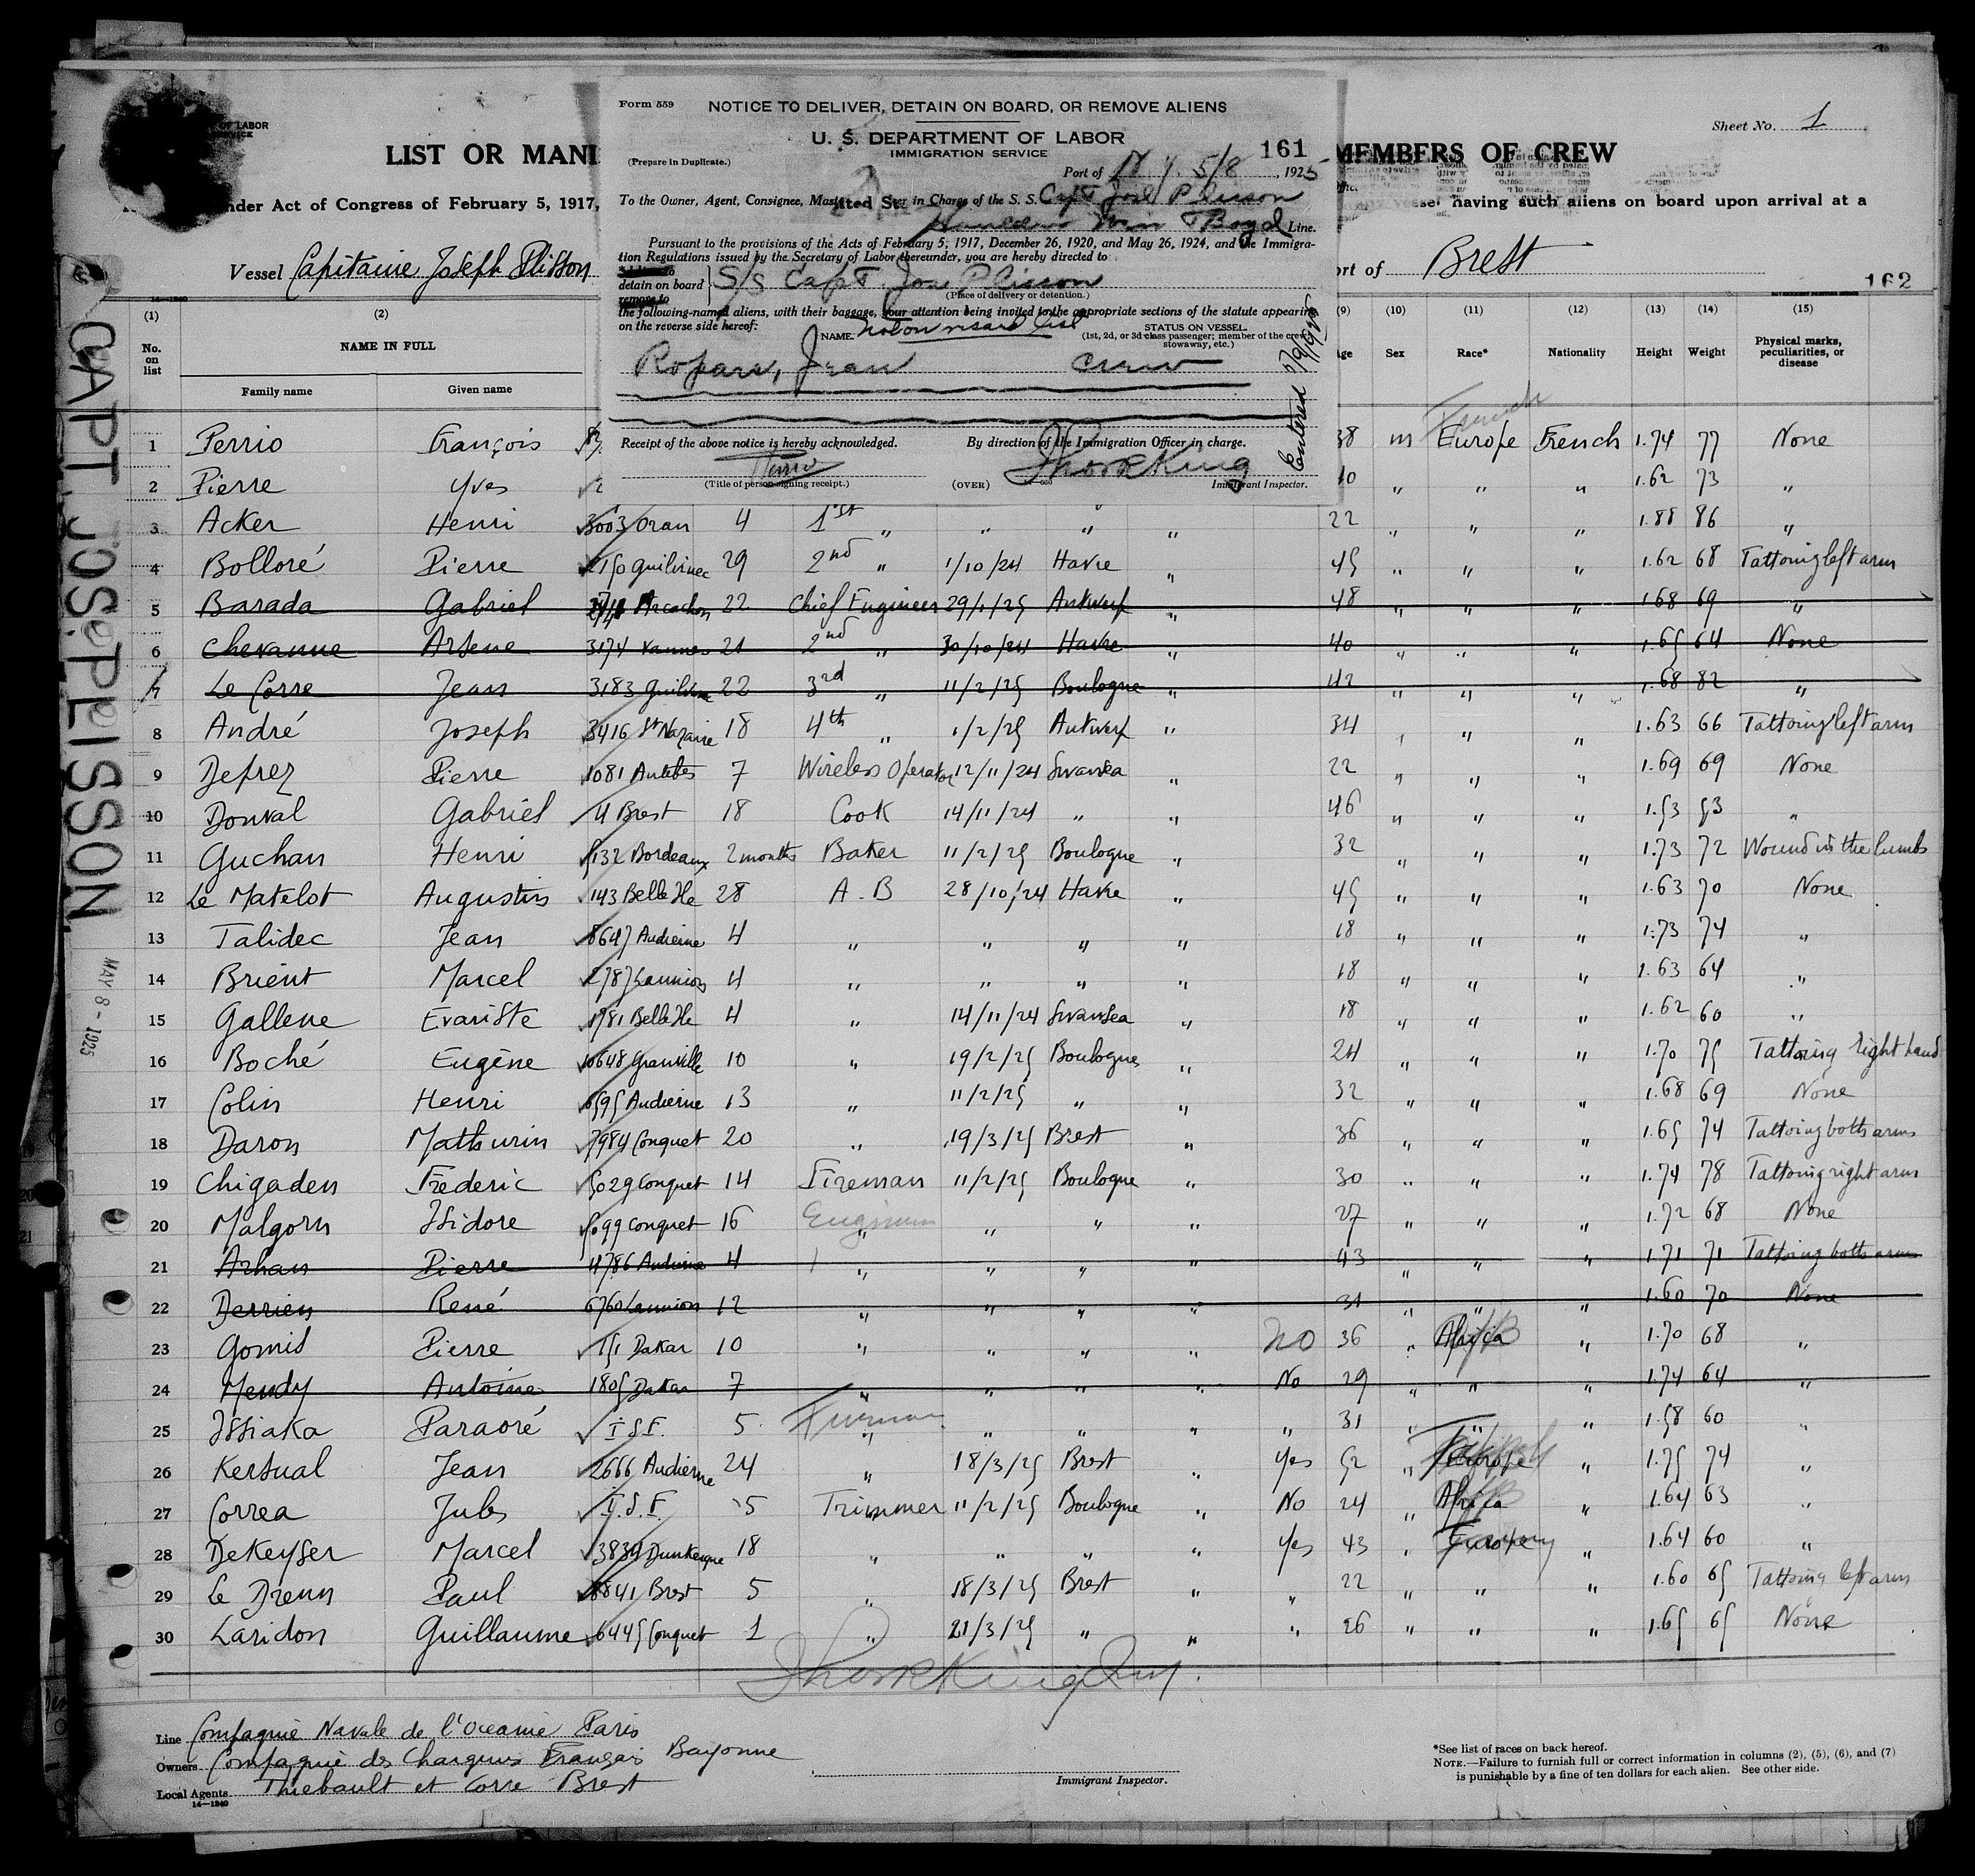 OF LABOR
SERVICE
LIST OR MANI
nder Act of Congress of February 5, 1917,
Vessel Capitaine Joseph Plisson
Form 559
NOTICE TO DELIVER, DETAIN ON BOARD, OR REMOVE ALIENS
U. S. DEPARTMENT OF LABOR
IMMIGRATION SERVICE
161
(Prepare in Duplicate.)
Port of N Y. 5/8, 1925
To the Owner, Agent, Consignee, Master in Charge of the S. S. Capt José Plisson
Boyd Line.
Pursuant to the provisions of the Acts of February 5, 1917, December 26, 1920, and May 26, 1924, and the Immigra-
tion Regulations issued by the Secretary of Labor thereunder, you are hereby directed to
detain on board
remove to
S/S Capt. Jos Plisson
(Place of delivery or detention.)
the following-named aliens, with their baggage, your attention being invited to the appropriate sections of the statute appearing
on the reverse side hereof:
NAME. Not on visaed list
STATUS ON VESSEL.
(1st, 2d, or 3d class passenger; member of the crew
stowaway, etc.)
Ropars, Jean crew
Entered
Receipt of the above notice is hereby acknowledged.
By direction of the Immigration Officer in charge.
Perrio
(Title of person signing receipt.)
(OVER)
Immigrant Inspector.
MEMBERS OF CREW
Sheet No. 1
having such aliens on board upon arrival at a
ort of Brest
162
(1) (2) (9) (10) (11) (12) (13) (14) (15)
No. on list
NAME IN FULL
Family name Given name
ge Sex Race* Nationality Height Weight Physical marks, peculiarities, or disease
French
1 Perrio François 38 m Europe French 1.74 77 None
2 Pierre Yves 40 " " " 1.62 73 "
3 Acker Henri 3003 Oran 4 1st " " " " 22 " " " 1.88 86 "
4 Bolloré Pierre 2150 Guilvinec 29 2nd " 1/10/24 Havre " 45 " " " 1.62 68 Tattoing left arm
5 Barada Gabriel Arcachon 22 Chief Engineer 29/1/25 Antwerp " 48 " " " 1.68 69 "
6 Chevanne Arsene 3174 Vannes 21 2nd " 30/10/24 Havre " 40 " " " 1.65 64 None
7 Le Corre Jean 3183 Guilvinec 22 3rd " 11/2/25 Boulogne " 42 " " " 1.68 82 "
8 André Joseph 3416 St Nazaire 18 4th " 1/2/25 Antwerp " 34 " " " 1.63 66 Tattoing left arm
9 Defrez Pierre 1081 Antibes 7 Wireless Operator 12/11/24 Swansea " 22 " " " 1.69 69 None
10 Donval Gabriel 4 Brest 18 Cook 14/11/24 " " 46 " " " 1.53 53 "
11 Guchan Henri 5132 Bordeaux 2 months Baker 11/2/25 Boulogne " 32 " " " 1.73 72 Wound in the lumbs
12 Le Matelot Augustin 143 Belle Ile 28 A.B 28/10/24 Havre " 45 " " " 1.63 70 None
13 Talidec Jean 8647 Audierne 4 " " " " 18 " " " 1.73 74 "
14 Brient Marcel 2787 Lannion 4 " " " " 18 " " " 1.63 64 "
15 Gallene Evariste 1781 Belle Ile 4 " 14/11/24 Swansea 18 " " " 1.62 60 "
16 Boché Eugène 10648 Granville 10 " 19/2/25 Boulogne " 24 " " " 1.70 75 Tattoing right hand
17 Colin Henri 6595 Audierne 13 " 11/2/25 " " 32 " " " 1.68 69 None
18 Daron Mathurin 7984 Conquet 20 " 19/3/25 Brest " 36 " " " 1.65 74 Tattoing both arms
19 Chigaden Fréderic 5029 Conquet 14 Fireman 11/2/25 Boulogne " 30 " " " 1.74 78 Tattoing right arm
20 Malgorn Isidore 5099 Conquet 16 " " " " 27 " " " 1.72 68 None
21 Arhan Pierre 4786 Audierne 4 " " " " 43 " " " 1.71 71 Tattoing both arms
22 Derrien René 6760 Lannion 12 " " " " 31 " " " 1.60 70 None
23 Gomis Pierre 151 Dakar 10 " " " " no 36 " Africa " 1.70 68 "
24 Mendy Antoine 1805 Dakar 7 " " " " No 29 " " " 1.74 64 "
25 Issiaka Paraoré I S F. 5 Fireman " " " " 31 " " " 1.58 60 "
26 Kersual Jean 2666 Audierne 24 " 18/3/25 Brest " Yes 52 " Europe " 1.75 74 "
27 Correa Jules I.S.F. 5 Trimmer 11/2/25 Boulogne " No 24 " Africa " 1.64 63 "
28 DeKeyser Marcel 3834 Dunkerque 18 " " " " Yes 43 " Europe " 1.64 60 "
29 Le Dreun Paul 8841 Brest 5 " 18/3/25 Brest " " 22 " " " 1.60 65 Tattoing left arm
30 Laridon Guillaume 6445 Conquet 1 " 21/3/25 " " " 26 " " " 1.65 65 None
CAPT JOS PLISSON
MAY 8 - 1925
Line Compagnie Navale de l'Oceanie Paris
Owners Compagnie des Chargeurs Français Bayonne
Local Agents Thiebault et Corre Brest
14—1240
Immigrant Inspector.
*See list of races on back hereof.
NOTE.—Failure to furnish full or correct information in columns (2), (5), (6), and (7)
is punishable by a fine of ten dollars for each alien. See other side.